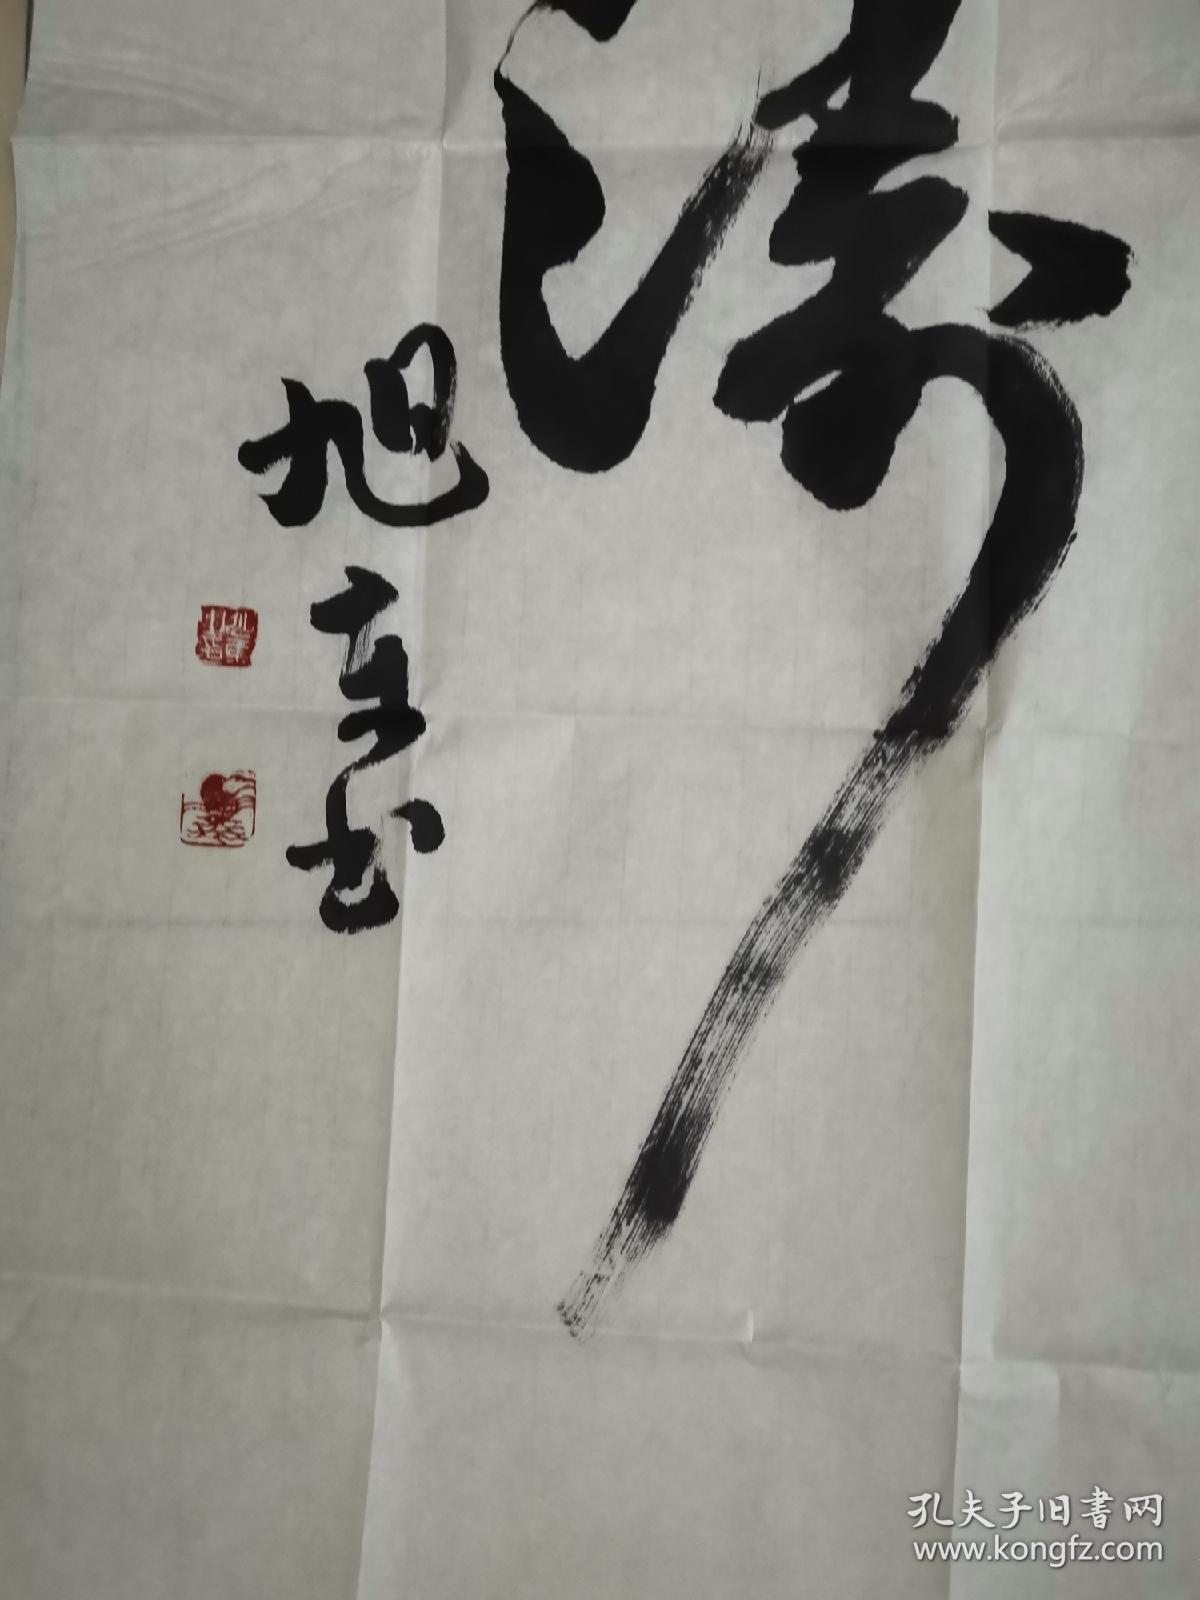 涛
旭东书
孔夫子旧书网
www.kongfz.com